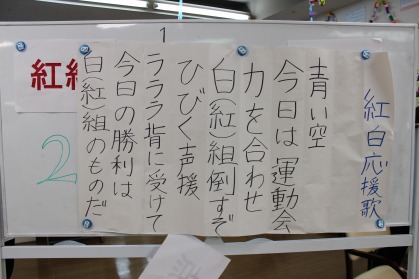 紅白応援歌
青い空
今日は運動会
力を合わせ
白(紅)組倒すぞ
ひびく声援
ラララ背に受けて
今日の勝利は
白(紅)組のものだ
1
紅
2